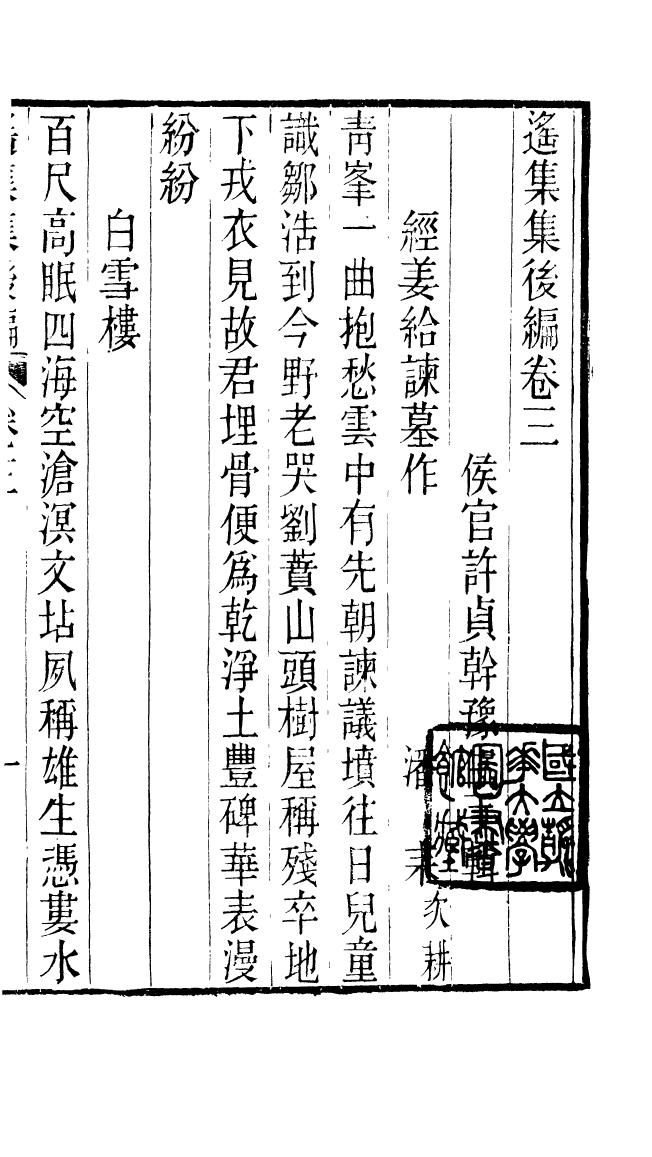 遙集集後編卷三
侯官許貞幹豫生輯
經姜給諫墓作　潘耒次耕
青峯一曲抱愁雲中有先朝諫議墳往日兒童
識鄒浩到今野老哭劉蕡山頭樹屋稱殘卒地
下戎衣見故君埋骨便爲乾淨土豐碑華表漫
紛紛
白雪樓
百尺高眠四海空滄溟文坫夙稱雄生憑婁水
遙集集後編　卷三　一
國立清華大學圖書館藏